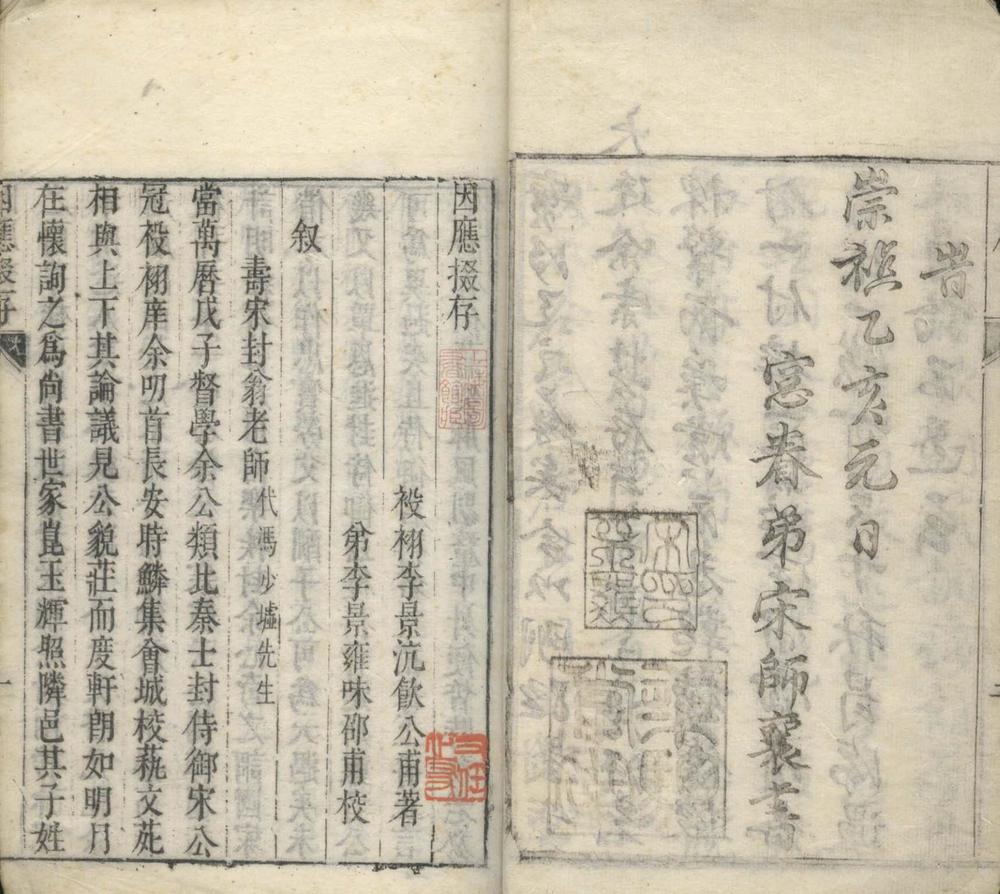 旹
崇禎乙亥元日
窓眷弟宋師襄書
因應掇存
祋祤李景沆飲公甫著
弟李景雍味邵甫校
叙
壽宋封翁老師代馮少墟先生
當萬曆戊子督學余公類比秦士封侍御宋公
冠祋祤庠余叨首長安時鱗集會城校蓺文茈
相與上下其論議見公貌莊而度軒朗如明月
在懷詢之為尚書世家崑玉輝照隣邑其子姓
因應掇存
一